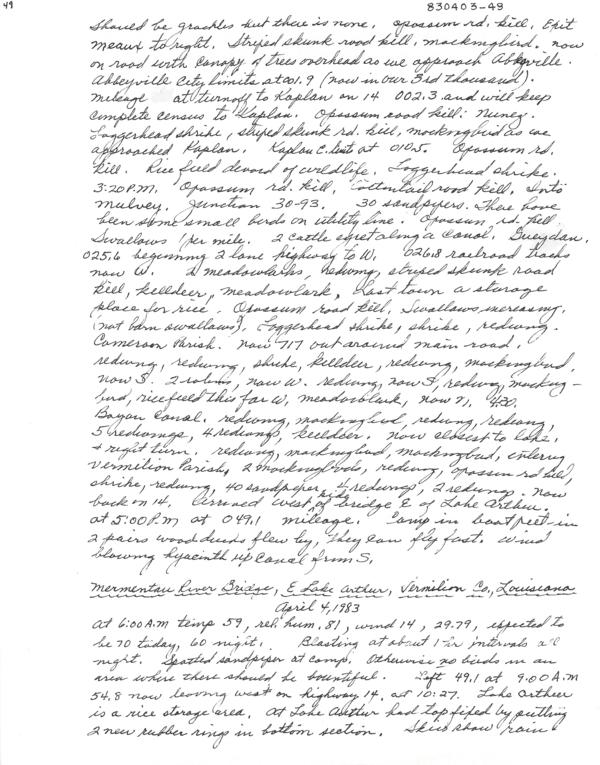 49
830403-49
Should be grackles but there is none. Opossum rd. kill. Exit
Meaux to right. Striped skunk road kill, mockingbird. now
on road with canopy of trees overhead as we approach Abbyville.
Abbeyville City limits at 001.9 (now in our 3rd thousand).
mileage at turnoff to Kaplan on 14 002.3 and will keep
complete census to Kaplan. Opossum road kill: Nunez.
Loggerhead shrike, striped skunk rd. kill, mockingbird as we
approached Kaplan. Kaplan C. limit at 010.5. Opossum rd.
kill. Rice field devoid of wildlife. Loggerhead shrike.
3:20 P.M. Opossum rd. kill, Cottontail road kill. Into
Mulvey. Junction 30-93. 30 sandpipers. There have
been some small birds on utility line. Opossum rd. kill
Swallows 1 per mile. 2 cattle egret along a Canal. Gueydan.
025.6 beginning 2 lane highway to W. 026.8 railroad tracks
now W. 2 meadowlarks, redwing, striped skunk road
kill, killdeer, meadowlark, Last town a storage
place for rice. Opossum road kill, Swallows increasing.
(not barn swallows). Loggerhead shrike, shrike, redwing.
Cameron Parish. Now 717 out around main road.
redwing, redwing, shrike, killdeer, redwing, mockingbird,
now S. 2 robins, now W. redwing, now S, redwing, mocking-
bird, rice field this far W, meadowlark, now 71, 4:30.
Bayou Canal. redwing, mockingbird, redwing, redwing,
5 redwings, 4 redwings, killdeer. now closest to lake.
+ right turn. redwing, mockingbird, mockingbird, entering
Vermilion Parish, 2 mockingbirds, redwing, opossum rd kill,
shrike, redwing, 40 sandpiper, 4 redwings, 2 redwing. Now
back on 14. Arrived west side of bridge E of Lake Arthur.
at 5:00 P.M at 049.1 mileage. Camp in boat put-in
2 pairs wood ducks flew by, they can fly fast. Wind
blowing hyacinth up Canal from S.
Mermentau River Bridge, E Lake Arthur, Vermilion Co., Louisiana
April 4, 1983
At 6:00 A.M temp 59, rel. hum. 81, wind 14, 29.79, expected to
be 70 today, 60 night. Blasting at about 1 hr intervals all
night. Spotted sandpiper at camp. Otherwise no birds in an
area where there should be bountiful. Left 49.1 at 9:00 A.M
54.8 now leaving west on highway 14, at 10:27. Lake Arthur
is a rice storage area. At Lake Arthur had top fifed by putting
2 new rubber rings in bottom section. Skies show rain.